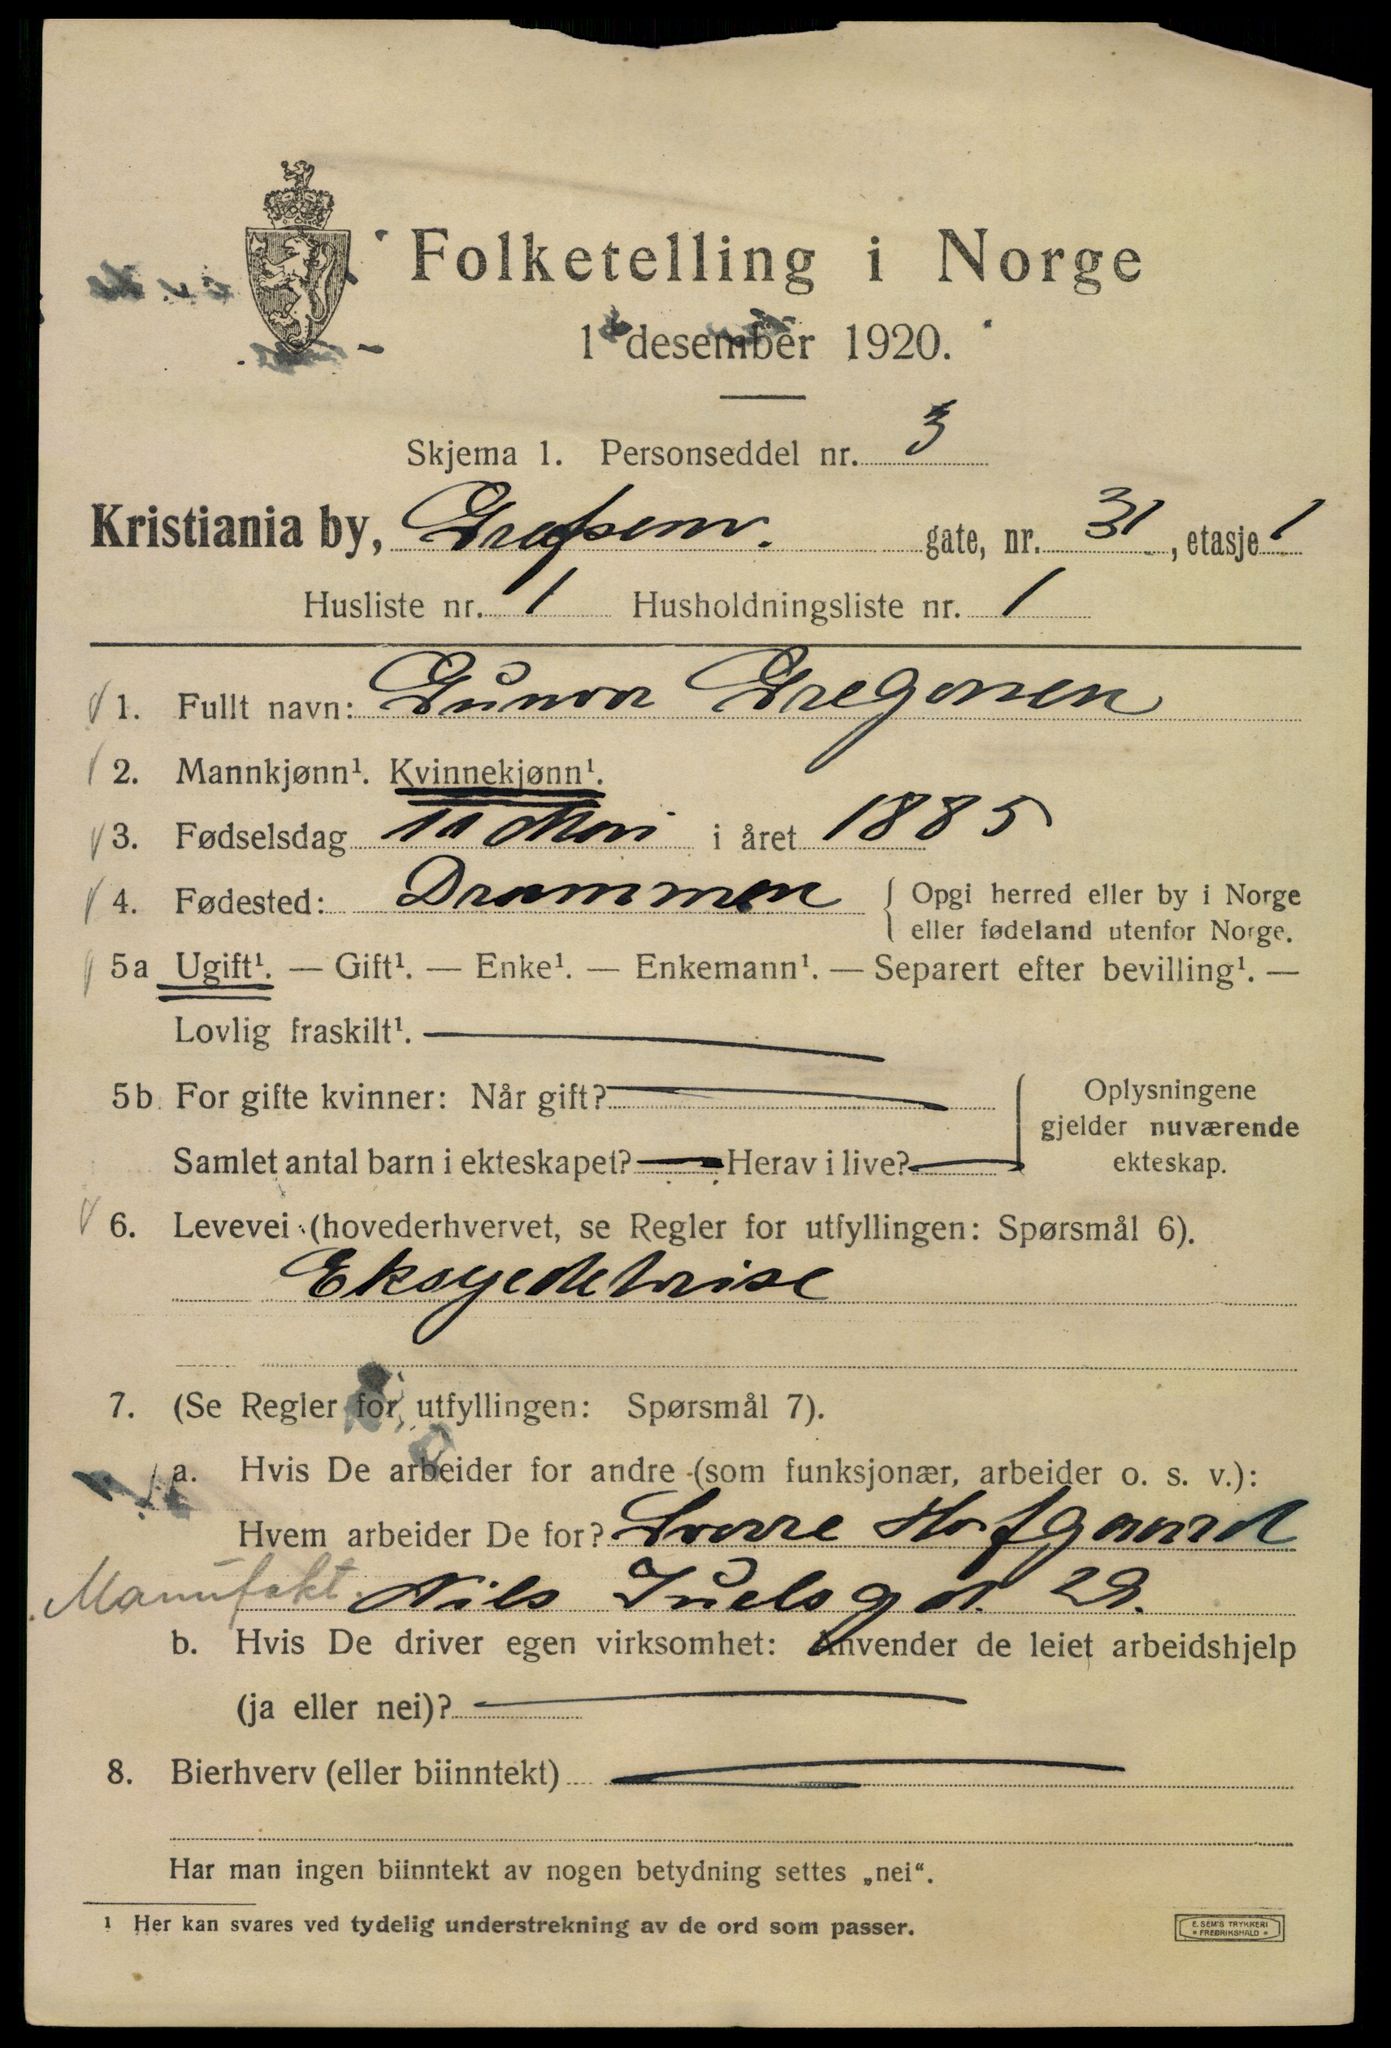 Folketelling i Norge
1 desember 1920.
Skjema 1. Personseddel nr. 3
Kristiania by, Grefsenv. gate, nr. 31, etasje 1
Husliste nr. 1 Husholdningsliste nr. 1
1. Fullt navn: Gunvor Gregersen
2. Mannkjønn¹. Kvinnekjønn¹.
3. Fødselsdag 11 Mai i året 1885
4. Fødested: Drammen { Opgi herred eller by i Norge
eller fødeland utenfor Norge.
5a Ugift¹. — Gift¹. — Enke¹. — Enkemann¹. — Separert efter bevilling¹. —
Lovlig fraskilt¹.
5b. For gifte kvinner: Når gift?
Samlet antal barn i ekteskapet? Herav i live?
Oplysningene
gjelder nuværende
ekteskap.
6. Levevei (hovederhvervet, se Regler for utfyllingen: Spørsmål 6).
Ekspeditrise
7. (Se Regler for utfyllingen: Spørsmål 7).
a. Hvis De arbeider for andre (som funksjonær, arbeider o. s. v.):
Hvem arbeider De for? Sverre Hofgaard
Manufakt. Nils Juelsgt. 29.
b. Hvis De driver egen virksomhet: Anvender de leiet arbeidshjelp
(ja eller nei)?
8. Bierhverv (eller biinntekt)
Har man ingen biinntekt av nogen betydning settes „nei“.
1 Her kan svares ved tydelig understrekning av de ord som passer.
E. SEM'S TRYKKERI
* FREDRIKSHALD *